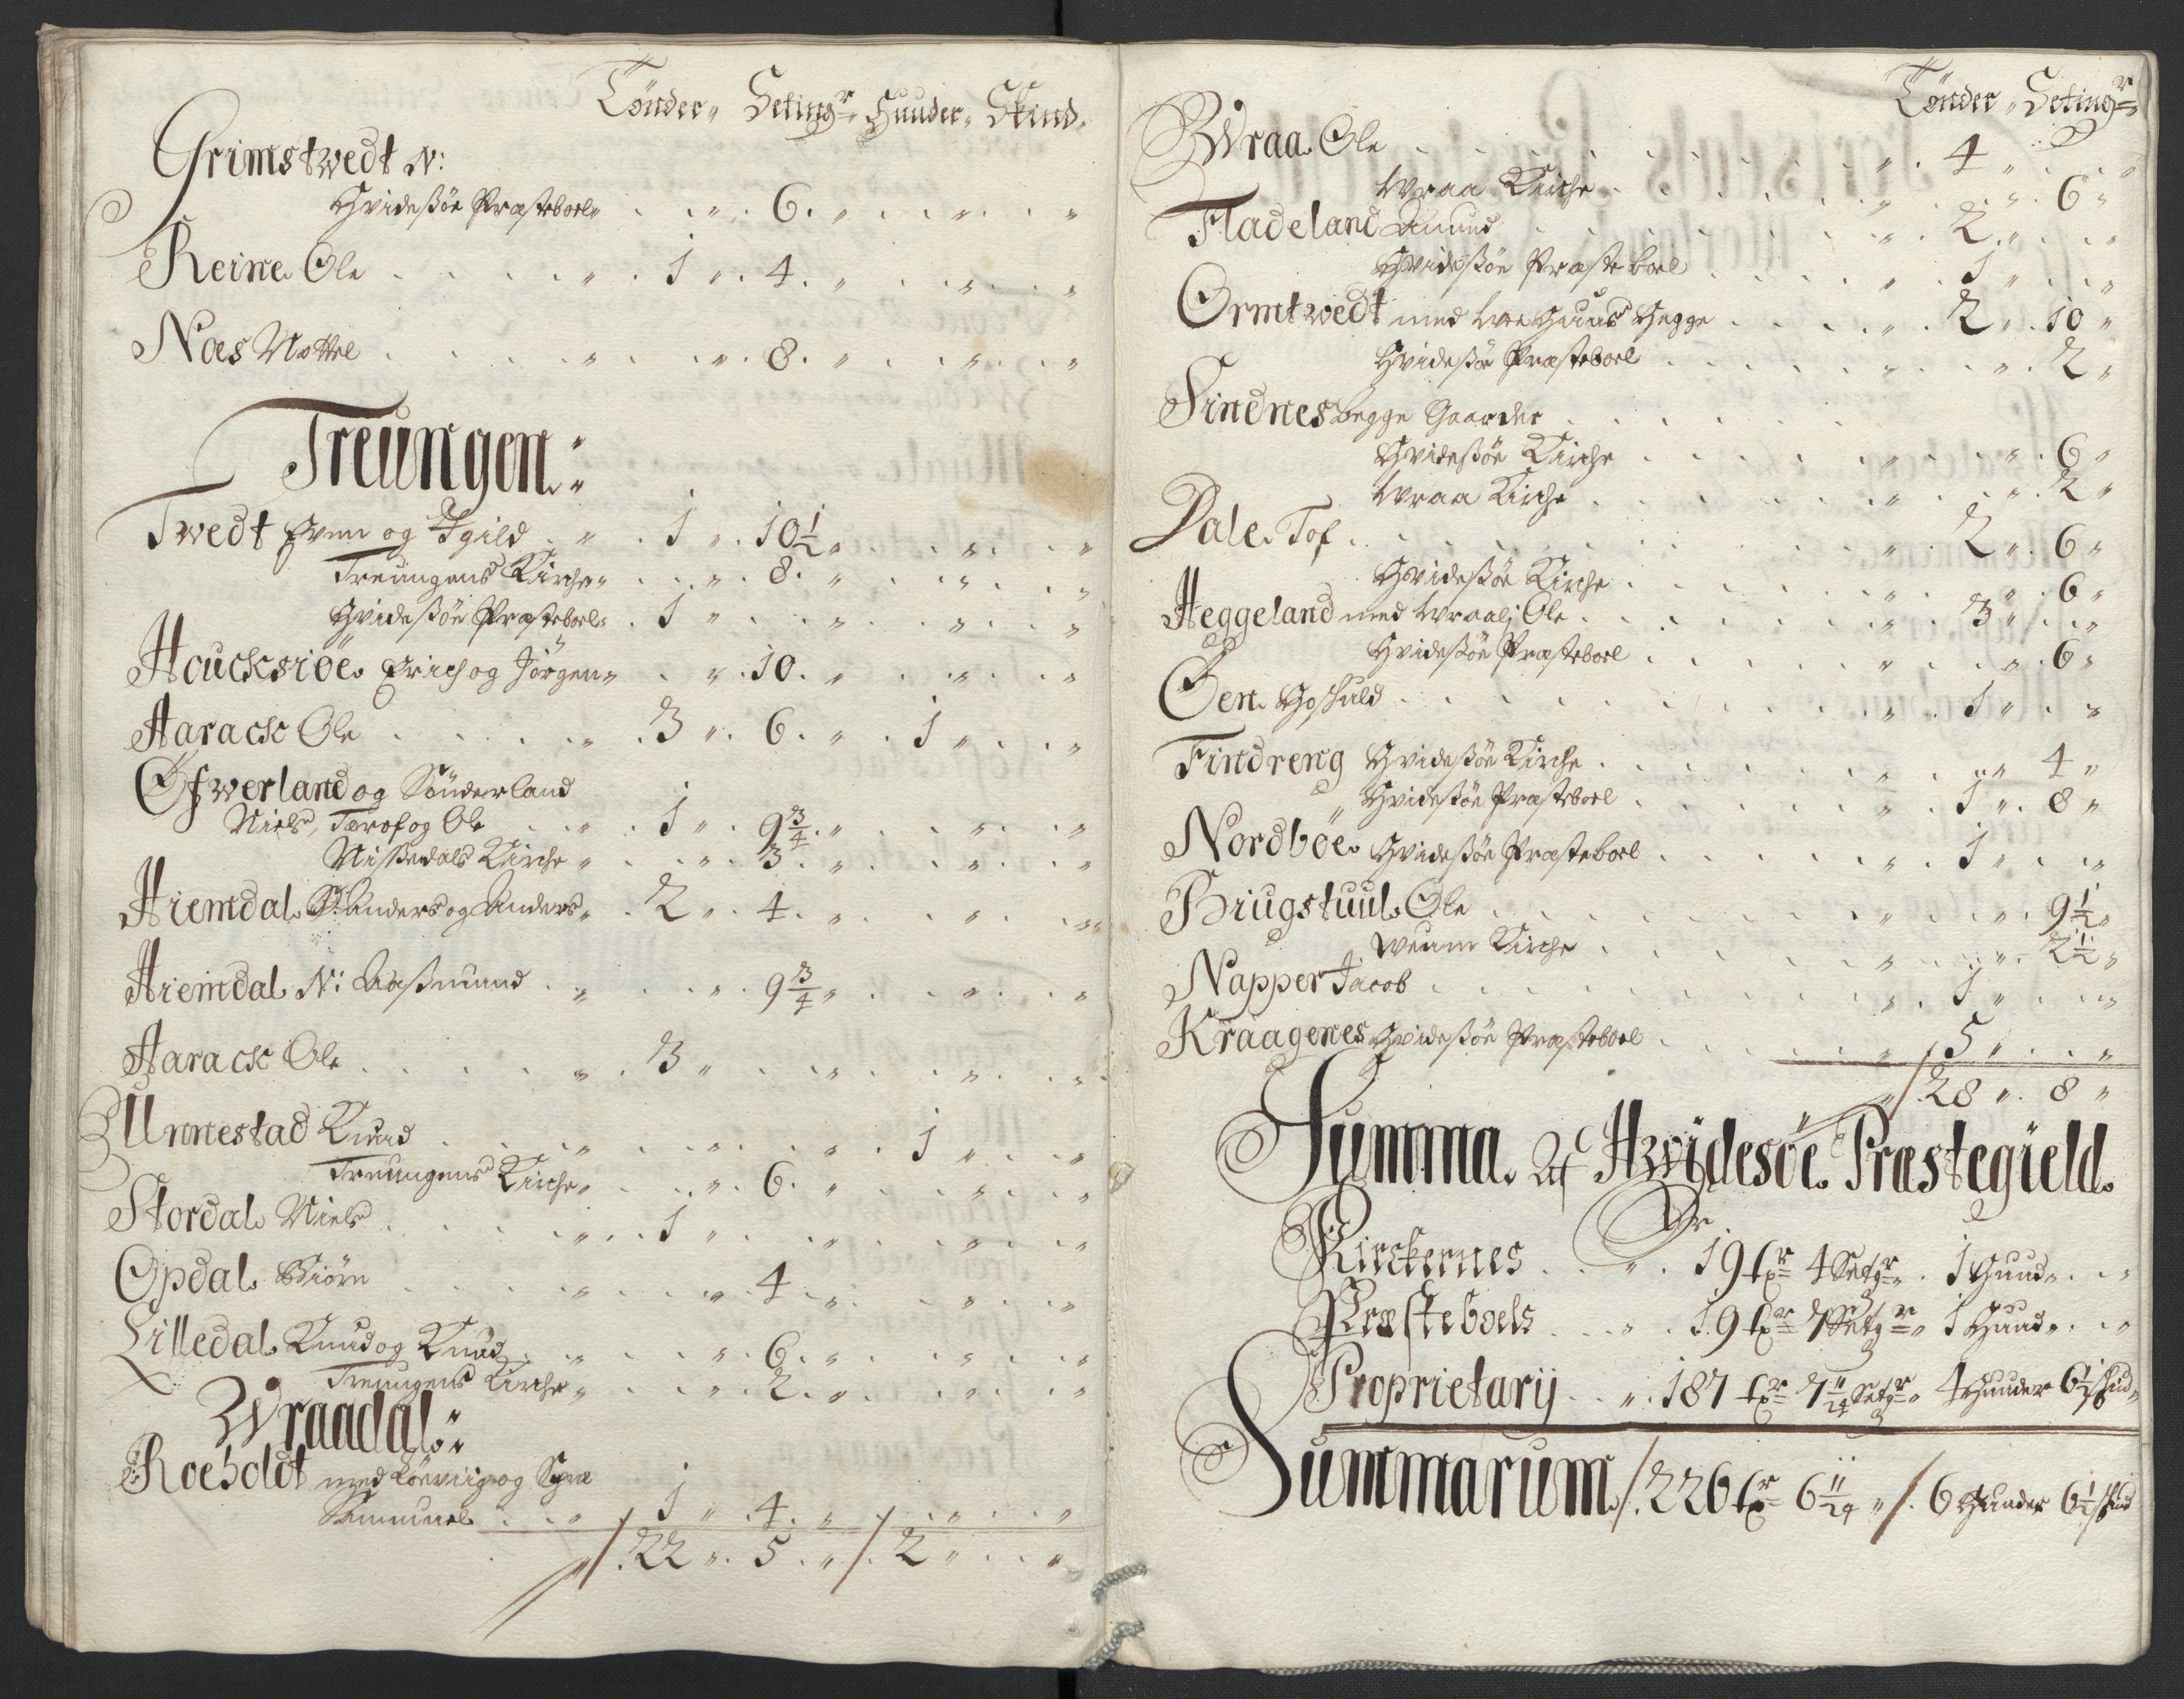 Tönder„ Setingr„ Huuder„ Skind„
Grimstwedt N:
Hvidesöe Præsteboel„ „ 6. „ „ „
Reine Ole „ 1 „ 4. „ „ „
Noes Nottel „ „ 8. „ „ „
Treungen:
Twedt Even og Egild „ 1 „ 10½ „ „ „
Treungens Kirche„ „ 8. „ „ „
Hvidesöe Præsteboel„ 1 „ „ „ „
Houcksiöe Erich og Jörgen„ „ 10. „ „ „
Aarack Ole „ 3 „ 6. „ 1 „ „
Öfwerland og Sönderland
Niels, Tarof og Ole „ 1 „ 9¾. „ „ „
Nissedals Kirche „ „ 3. „ „ „
Hiemdal St: Anders og Anders„ 2 „ 4. „ „ „
Hiemdal N: Aasmund „ „ 9¾ „ „ „
Aarack Ole „ 3 „ „ „ „
Unnestad Knud „ „ „ 1 „ „
Treungens Kirche„ „ 6. „ „ „
Stordal Niels „ 1 „ „ „ „
Opdal Biörn „ „ 4. „ „ „
Lilledal Knud og Knud „ „ 6. „ „ „
Treungens Kirche„ „ 2. „ „ „
Wraadal:
Roeholdt med Löeviig og
Samuel „ 1 „ 4. „ „ „
„/. 22 „ 5. „/. 2 „ „
Tönder „ Setingr„
Wraa Ole „ 4 „ „
Wraa Kirche „ „ 6 „
Fladeland Amund „ 2 „ „
Hvidesöe Præsteboel „ 1 „ „
Ormtwedt med Hegge „ 2 „ 10 „
Hvidesöe Præsteboel „ „ 2 „
Sindnes begge Gaarder
Hvidesöe Kirche „ „ 6 „
Wraa Kirche „ „ 2 „
Dale Tof „ 2 „ 6 „
Hvidesöe Kirche „ „ 6 „
Heggeland med Wraalj Ole „ 3 „ „
Hvidesöe Præsteboel „ „ 6 „
Öen Goskuld „ 1 „ „
Findreng Hvidesöe Kirche „ „ 4 „
„ Hvidesöe Præsteboel „ 1 „ 8 „
Nordböe Hvidesöe Præsteboel „ 1 „ „
Briugstuul Ole „ „ 9½ „
Weum Kirche „ „ 2½ „
Napper Jacob „ 1 „ „
Kraagenes Hvidesöe Præsteboel „ 5 „ „
„/. 28 „ 8 „
Summa Af Hwidesöe Præstegield
Er
Kirckernes „ 19 tr 4 Setgr„ 1 Huud„ „
Præsteboels „ 19 tr 7 Setgr„ 1 Huud„ „
Proprietarij „ 187 tr 7 11/24 Setgr„ 4 Huuder 6½ skind„
Summarum /. 226 tr 6 11/24 „/. 6 Huuder 6½ skind